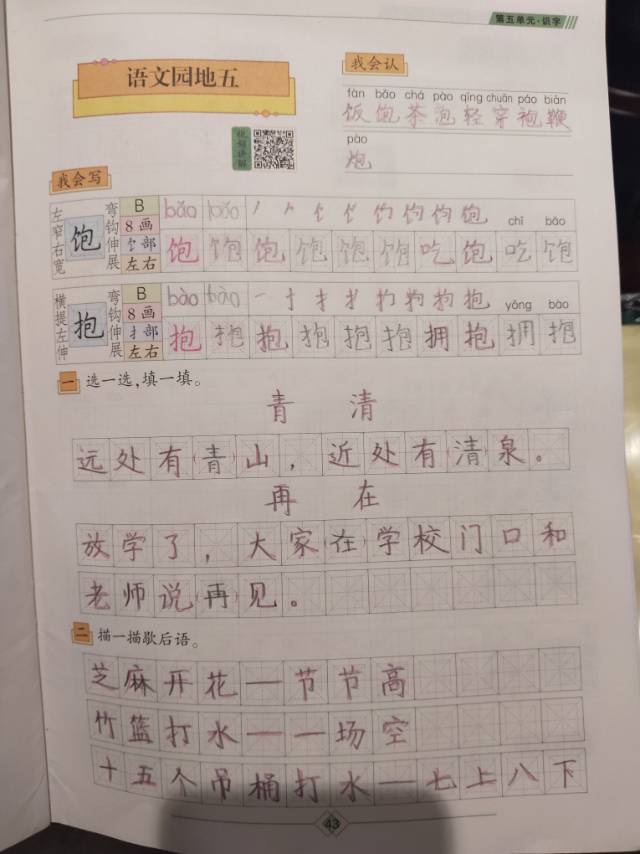 第五单元·识字
语文园地五
视频讲解
我会认
fàn bǎo chá pào qīng chuān páo biān
饭 饱 茶 泡 轻 穿 袍 鞭
pào
炮
我会写
左窄右宽
饱
弯钩伸展
B
8 画
饣部
左右
bǎo bǎo
chī bǎo
饱 饱 饱 饱 饱 饱 吃 饱 吃 饱
横提左伸
抱
弯钩伸展
B
8 画
扌部
左右
bào bào
yōng bào
抱 抱 抱 抱 抱 抱 拥 抱 拥 抱
一 选一选,填一填。
青 清
远处有(青)山,近处有(清)泉。
再 在
放学了,大家(在)学校门口和
老师说(再)见。
二 描一描歇后语。
芝麻开花——节节高
竹篮打水——一场空
十五个吊桶打水——七上八下
43